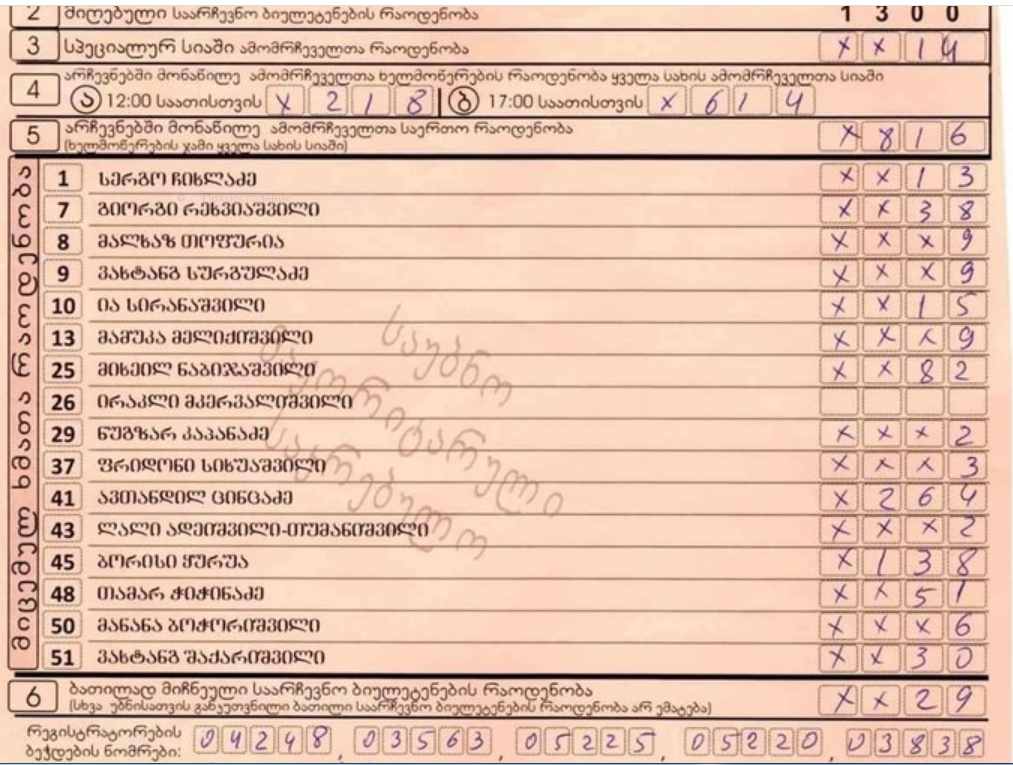 2 მიღებული საარჩევნო ბიულეტენების რაოდენობა 1 3 0 0
3 სპეციალურ სიაში ამომრჩეველთა რაოდენობა X X 1 4
4 არჩევნებში მონაწილე ამომრჩეველთა ხელმოწერების რაოდენობა ყველა სახის ამომრჩეველთა სიაში
ა 12:00 საათისთვის X 2 1 8 ბ 17:00 საათისთვის X 6 1 4
5 არჩევნებში მონაწილე ამომრჩეველთა საერთო რაოდენობა X 8 1 6
(ხელმოწერების ჯამი ყველა სახის სიაში)
მიცემულ ხმათა რაოდენობა
1 სერგო ჩიხლაძე X X 1 3
7 გიორგი რეხვიაშვილი X X 3 8
8 მალხაზ თოფურია X X X 9
9 ვახტანგ სურგულაძე X X X 9
10 ია სირანაშვილი X X 1 5
13 მამუკა მელიქიშვილი X X X 9
25 მიხეილ ნაბიჯაშვილი X X 8 2
26 ირაკლი მკერვალიშვილი
29 ნუგზარ კაპანაძე X X X 2
37 ფრიდონი სიხუაშვილი X X X 3
41 ავთანდილ ცინცაძე X 2 6 4
43 ლალი ადეიშვილი-თუმანიშვილი X X X 2
45 ბორისი ყურუა X 1 3 8
48 თამარ ჭიჭინაძე X X 5 1
50 მანანა ბოჭორიშვილი X X X 6
51 ვახტანგ შაქარიშვილი X X 3 0
საუბნო
მაჟორიტარული
საკრებულო
6 ბათილად მიჩნეული საარჩევნო ბიულეტენების რაოდენობა X X 2 9
(სხვა უბნისათვის განკუთვნილი ბათილი საარჩევნო ბიულეტენების რაოდენობა არ ემატება)
რეგისტრატორების
ბეჭდების ნომრები: 04248, 03563, 05225, 05220, 03838